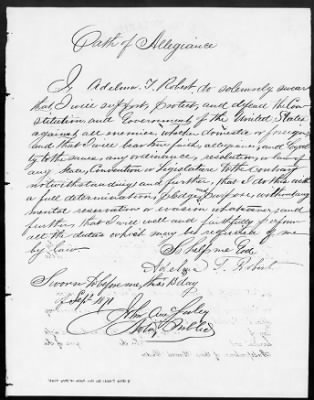 Oath of Allegiance
I, Adelma T. Robert do solemnly swear
that I will support, protect, and defend the Con
stitution and Government of the United States
against all enemies, whether domestic or foreign
and that I will bear true faith, allegiance, and loyal
ty to the same, any ordinance, resolution, or law of
any State, Convention or Legislature to the contrary
notwithstanding; and further, that I do this with
a full determination, pledge and purpose, without any
mental reservation or evasion whatsoever; and
further, that I will well and faithfully perform
all the duties which may be required of me
by law
So help me God
Adelma T. Robert
Sworn to before me, this day
of Sept 18
John
Notary Public